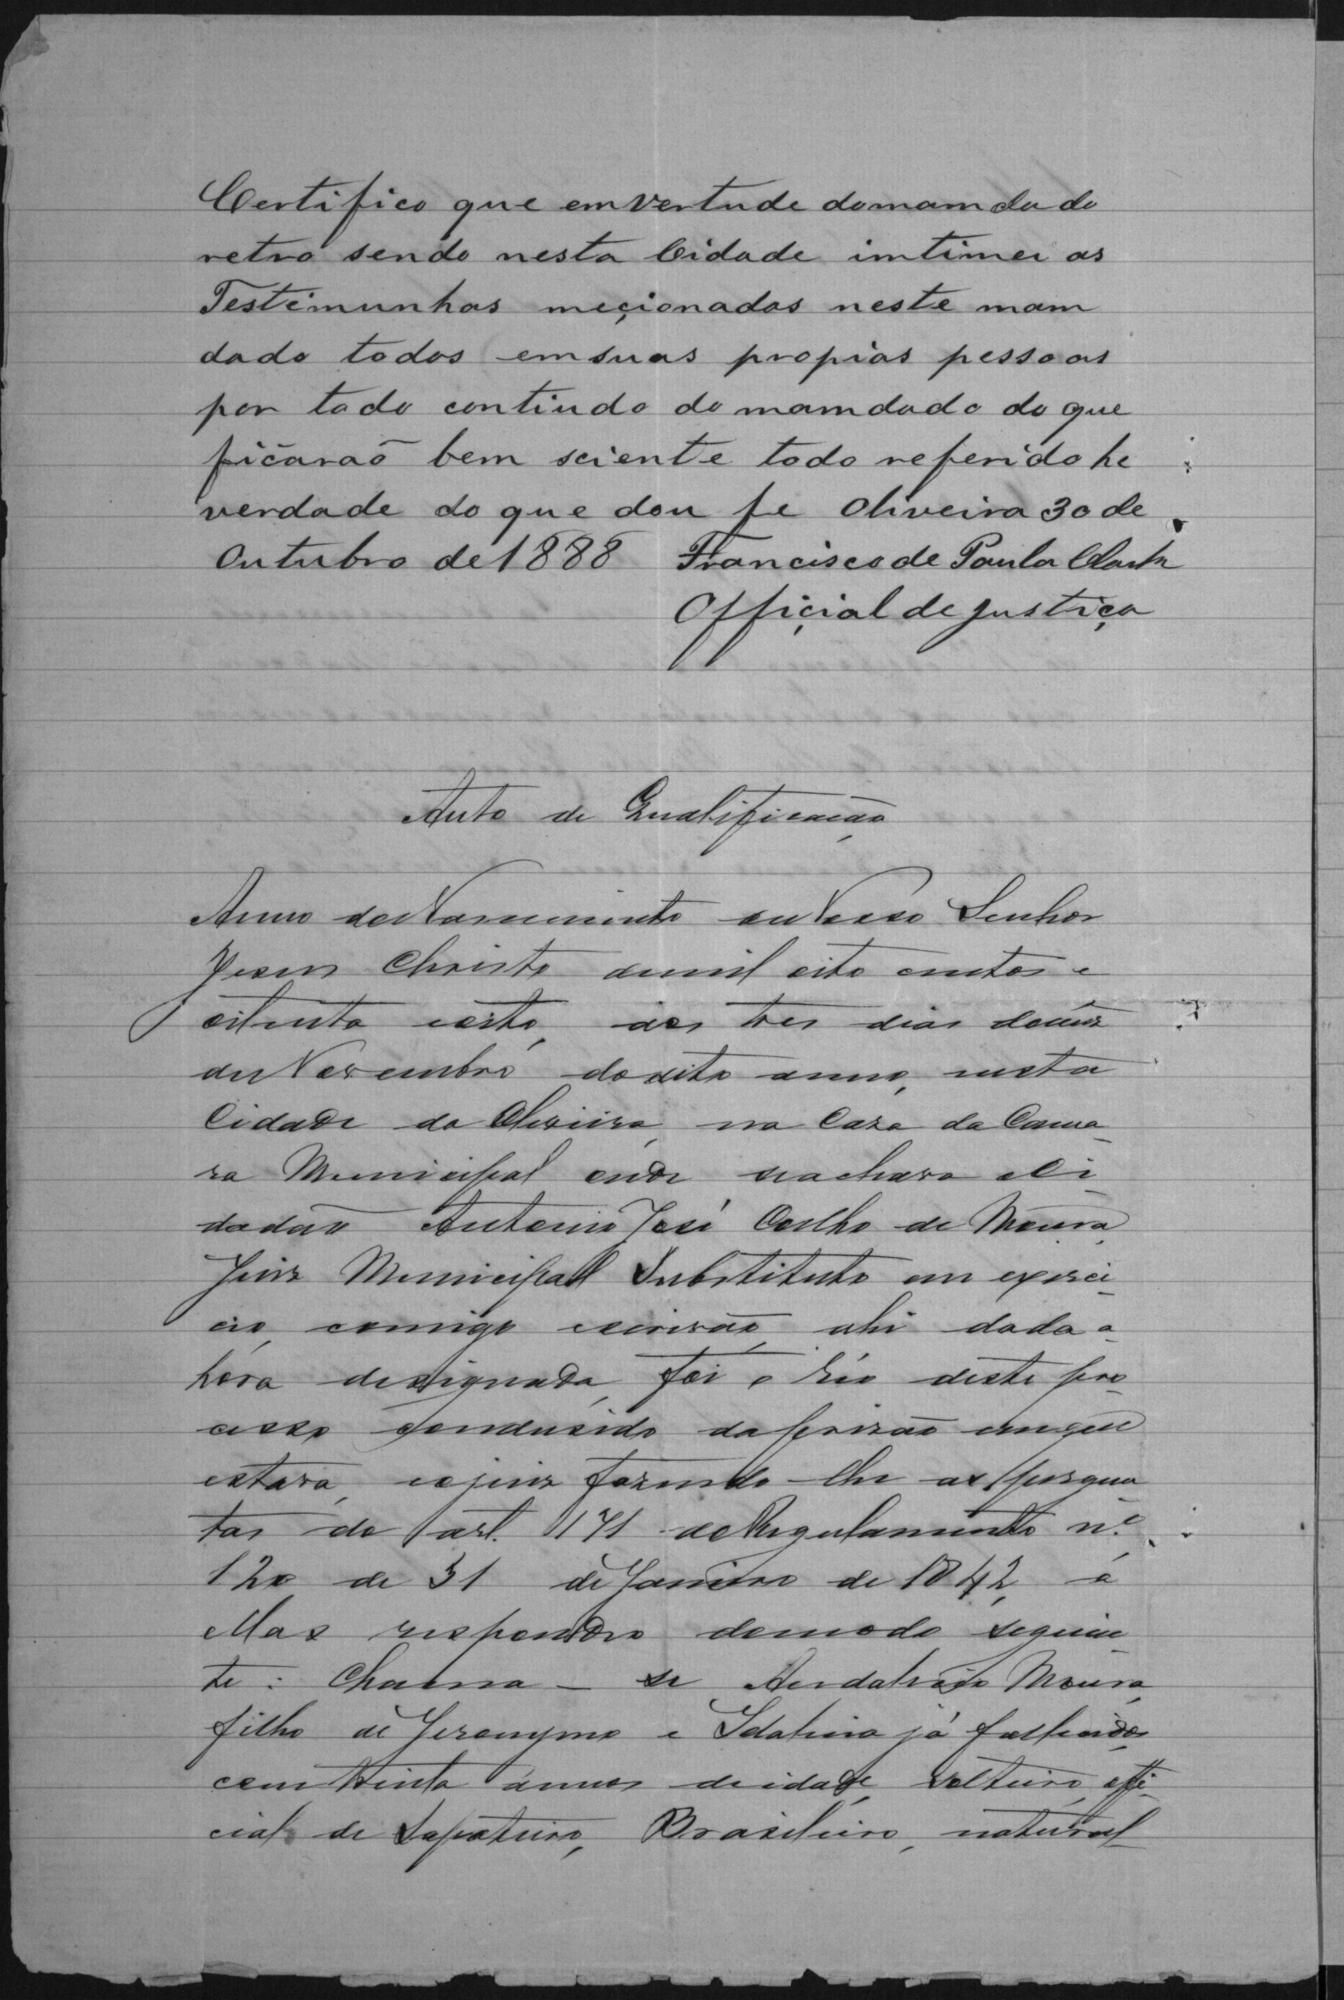 Certifico que em vertude do mamdado
retro sendo nesta Cidade imtimei as
Testimunhas meçionadas neste mam
dado todos em suas propias pessoas
por todo contiudo do mamdado do que
ficarão bem sciente todo referido he
verdade do que dou fe Oliveira 30 de
Outubro de 1888 Francisco de Paula
Offiçial de justiça
Auto de Qualificação
Anno do Nascimento de Nosso Senhor
Jesus Christo de mil oito centos e
oitenta e oito, aos tres dias do mez
de Novembro do dito anno, nesta
Cidade de Oliveira, na Caza da Cama-
ra Municipal onde se achava o Ci-
dadão Antonio José Coelho de Moura,
Juiz Municipal Substituto em exerci-
cio, comigo escrivão, ahi dada a
hora designada, foi o Réo deste pro-
cesso condusido da prizão em que
estava, e o juiz fazendo-lhe as pergun
tas do art. 171 do Regulamento n.º
120 de 31 de Janeiro de 1842, á
ellas respondeo do modo seguin-
te: Chama-se Moura,
filho de Jeronymo e já fallecidos,
com trinta annos de idade, solteiro, offi-
cial de Sapateiro, Brasileiro, natural